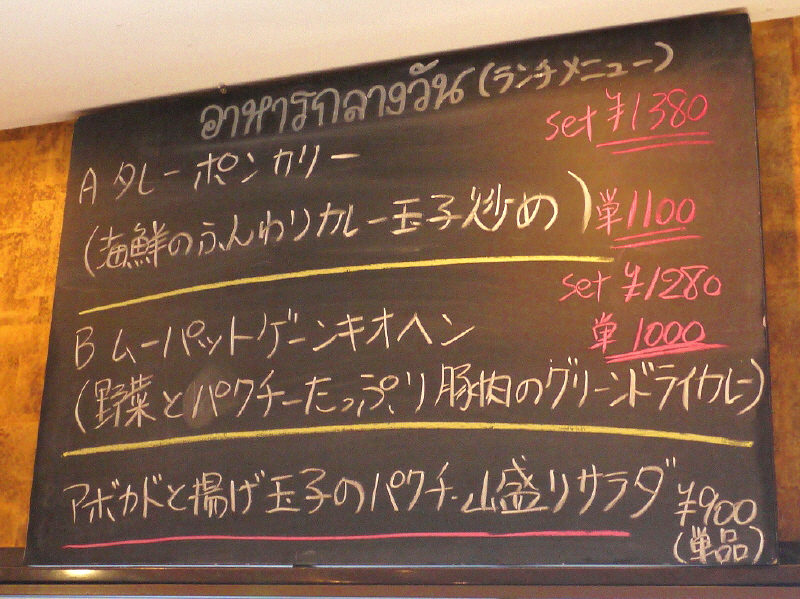 อาหารกลางวัน (ランチメニュー)
set ¥1380
A タレーポンカリー
(海鮮のふんわりカレー玉子炒め)
単 1100
set ¥1280
B ムーパットゲーンキオヘン
単 1000
(野菜とパクチーたっぷり豚肉のグリーンドライカレー)
アボカドと揚げ玉子のパクチー山盛りサラダ ¥900
(単品)